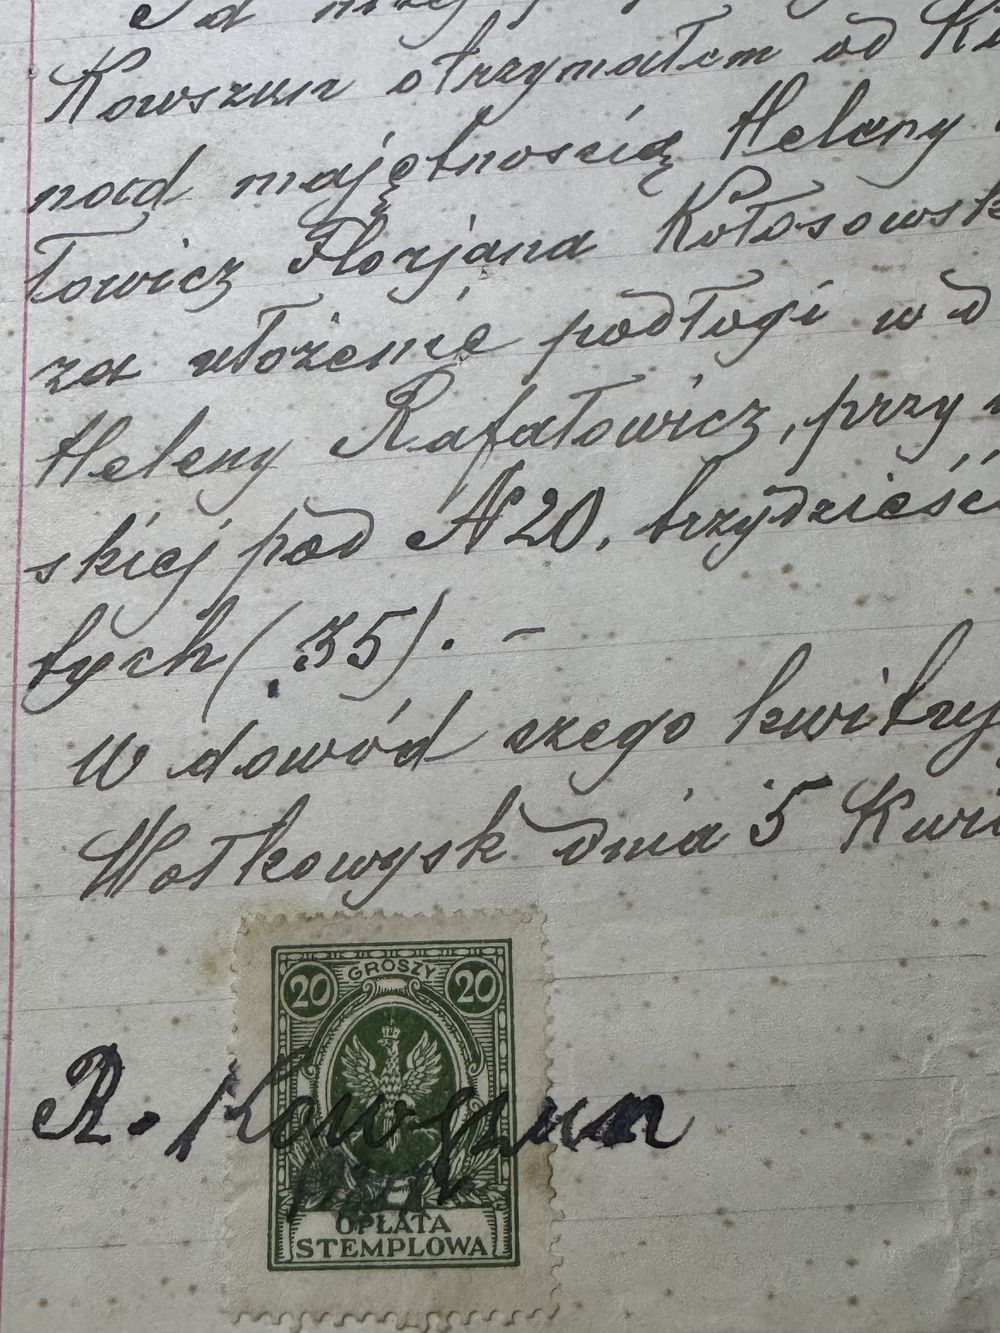 Ja niżej
Kowszun otrzymałem od
nad majętnością Heleny
łowicz Florjana Kołosowsk
za ułożenie podłogi w d
Heleny Rafałowicz, przy
skiej pod N20, trzydzieści
tych (35). –
W dowód czego kwituj
Wołkowysk dnia 5 Kwi
GROSZY
20 20
R. Kowszun
OPŁATA
STEMPLOWA